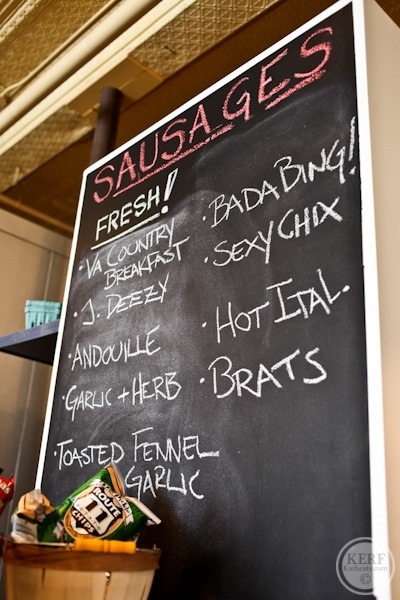 SAUSAGES
FRESH!
· VA COUNTRY
BREAKFAST
· J. DEEZY
· ANDOUILLE
· GARLIC + HERB
· TOASTED FENNEL
GARLIC
· BADA BING!
· SEXY CHIX
· HOT ITAL.
· BRATS
ROUTE
11
CHIPS
KERF
Katheats.com
©